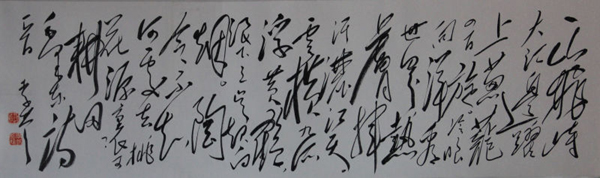 一山飛峙
大江邊躍
上葱蘢
四百旋冷眼
向洋看
世界熱
膚揮
汗灑江天
雲横九派
浮黄鶴
浪下三吴起白
烟陶
令不知
何處去桃
花源裏可
耕田
毛主席詩
一首